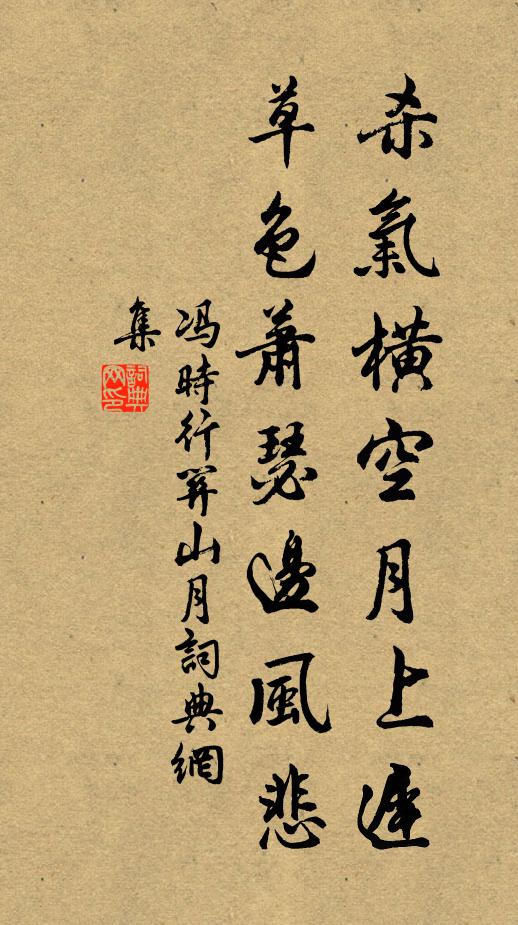 杀氣橫空月上遲
草色蕭瑟邊風悲
冯時行關山月詞典網
集
詞典网印